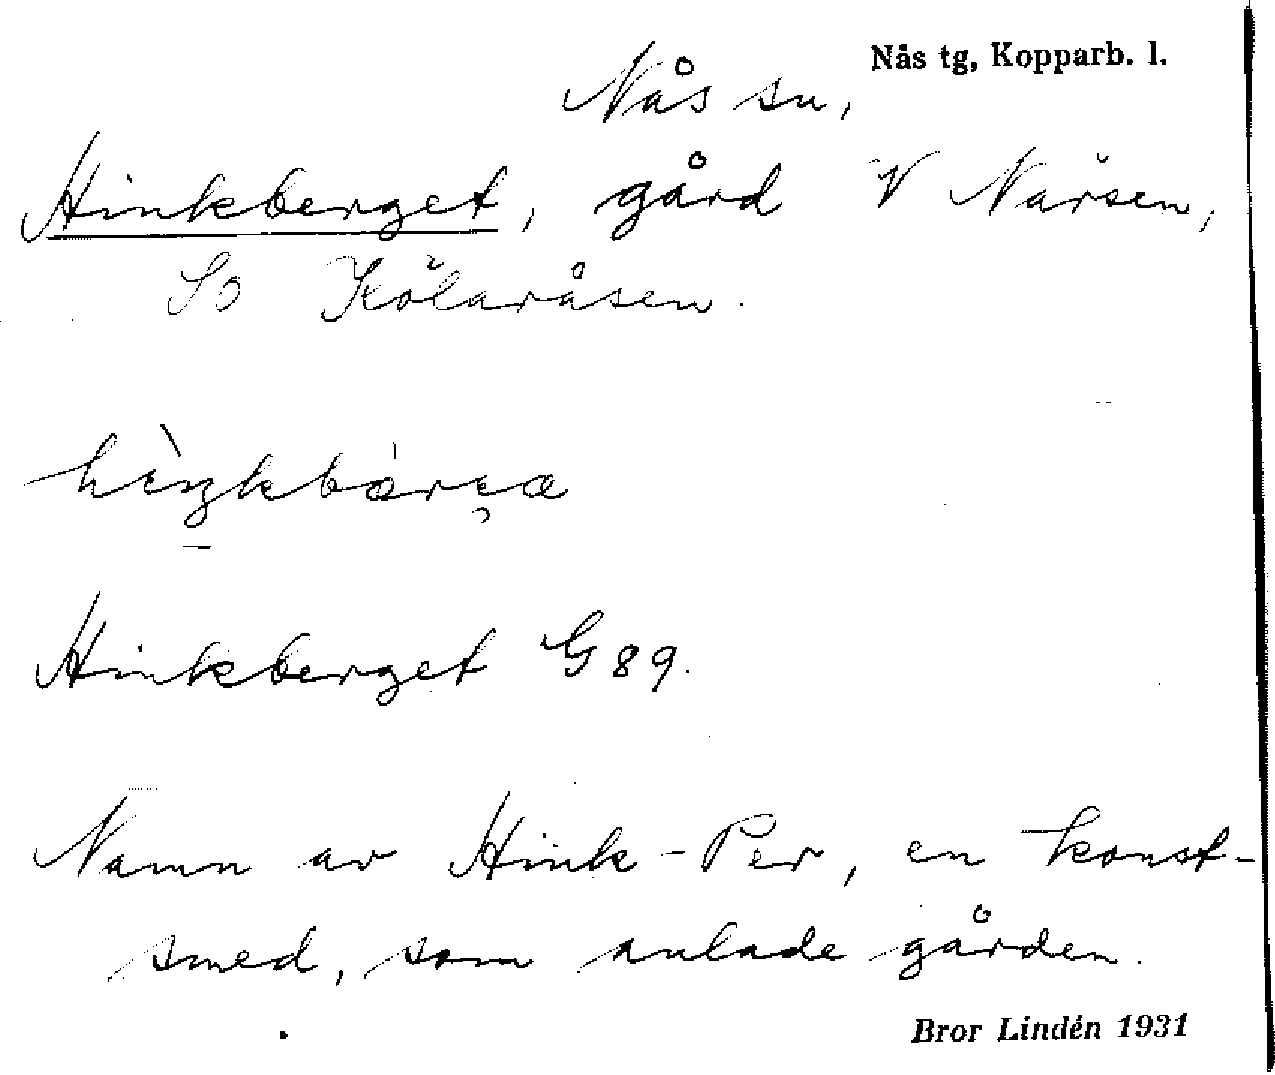 Nås tg, Kopparb. l.
Nås sn,
Hinkberget, gård V Närsen,
SO Kölaråsen.
Hinkberget G 89.
Namn av Hink-Per, en konst-
smed, som anlade gården.
Bror Lindén 1931